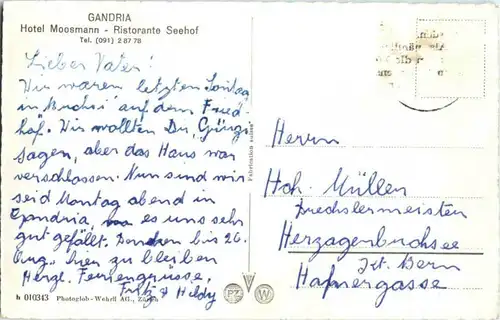 GANDRIA
Hotel Moosmann - Ristorante Seehof
Tel. (091) 2 87 78
Lieber Vater!
Wir waren letzten Sontag
in Buchsi auf dem Fried-
hof. Wir wollten Dir,
sagen, aber das Haus war
verschlossen. Nun sind wir
seid Montag abend in
Gandria, es uns sehr
gut gefällt. bis 26.
Aug. hier zu bleiben
Herzl. Feriengrüsse,
Fritz & Hildy
Herrn
Joh. Müller
Drechslermeister
Herzogenbuchsee
Kt. Bern
Hafnergasse
h 010343 Photoglob-Wehrli AG., Zürich
PZ W